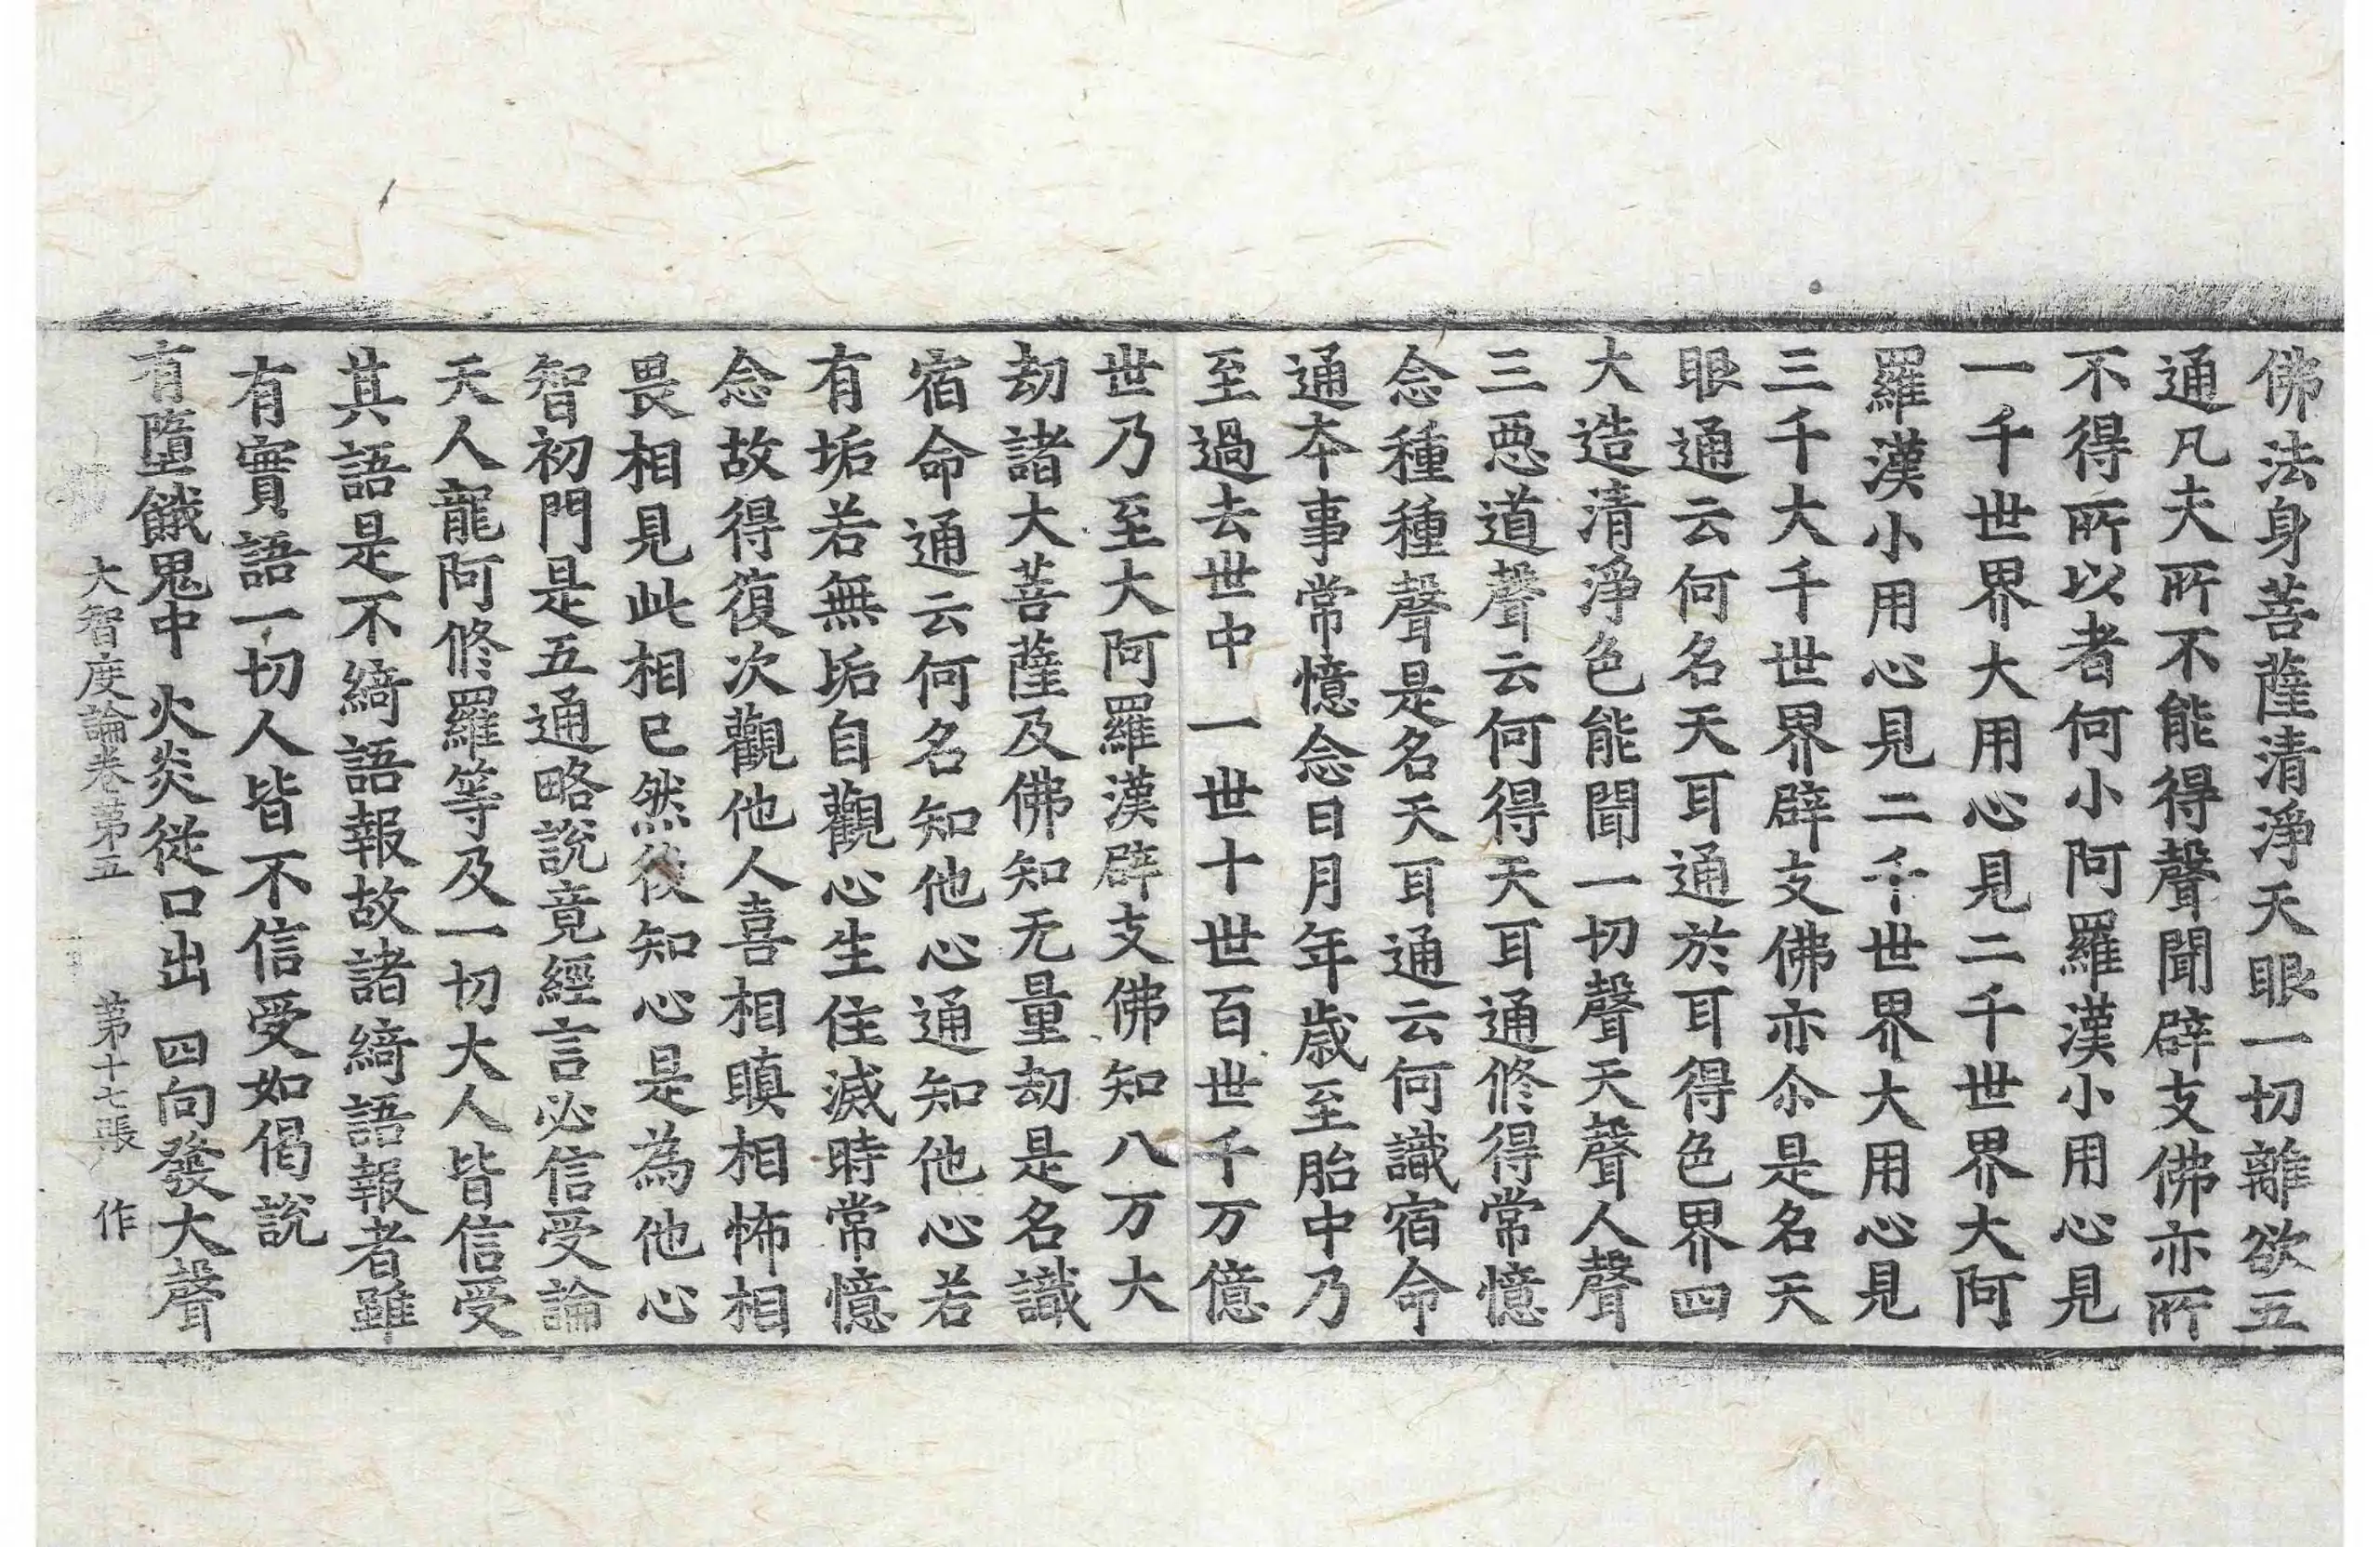 佛法身菩薩清淨天眼一切離欲五
通凡夫所不能得聲聞辟支佛亦所
不得所以者何小阿羅漢小用心見
一千世界大用心見二千世界大阿
羅漢小用心見二千世界大用心見
三千大千世界辟支佛亦尒是名天
眼通云何名天耳通於耳得色界四
大造清淨色能聞一切聲天聲人聲
三惡道聲云何得天耳通修得常憶
念種種聲是名天耳通云何識宿命
通本事常憶念日月年歲至胎中乃
至過去世中一世十世百世千万億
世乃至大阿羅漢辟支佛知八万大
劫諸大菩薩及佛知无量劫是名識
宿命通云何名知他心通知他心若
有垢若無垢自觀心生住滅時常憶
念故得復次觀他人喜相瞋相怖相
畏相見此相已然後知心是為他心
智初門是五通略說竟經言必信受論
天人龍阿修羅等及一切大人皆信受
其語是不綺語報故諸綺語報者雖
有實語一切人皆不信受如偈說
有墮餓鬼中 火炎從口出 四向發大聲
大智度論卷第五 第十七張 作